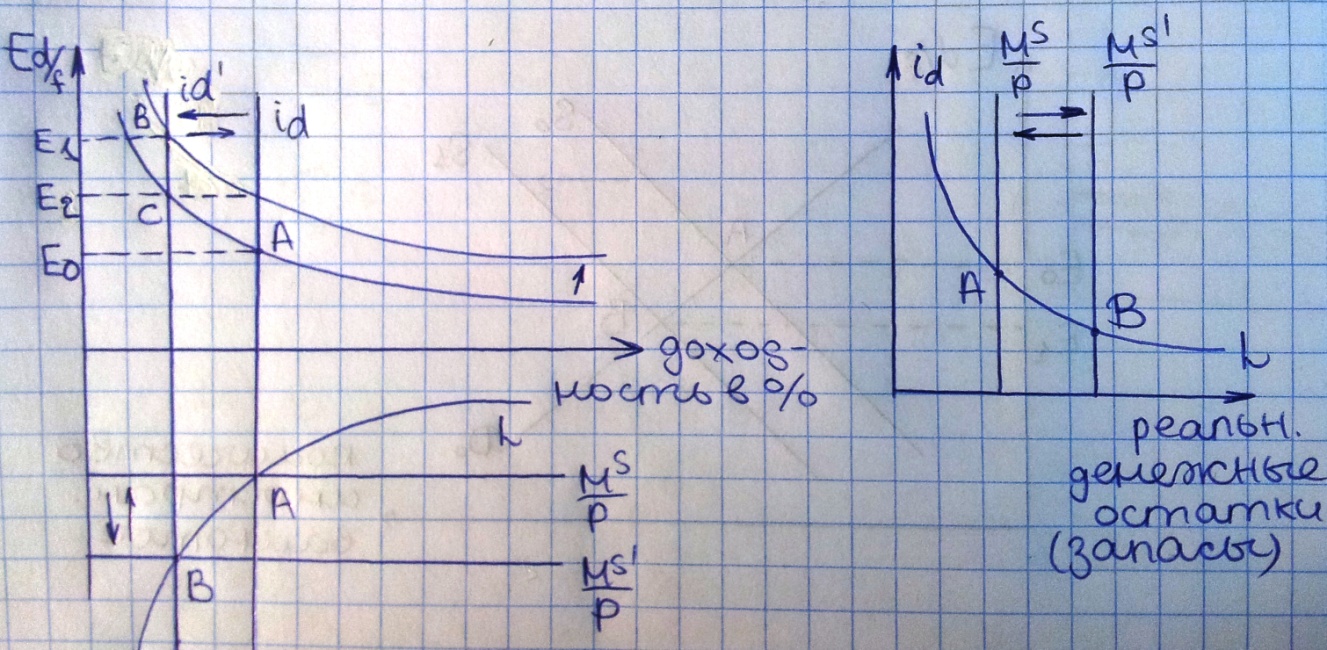 Ed/f
id'
id
B
E1
E2
C
A
E0
доход-
ность в %
L
M^S
P
A
M^S'
P
B
id
M^S
P
M^S'
P
A
B
L
реальн.
денежные
остатки
(запасы)